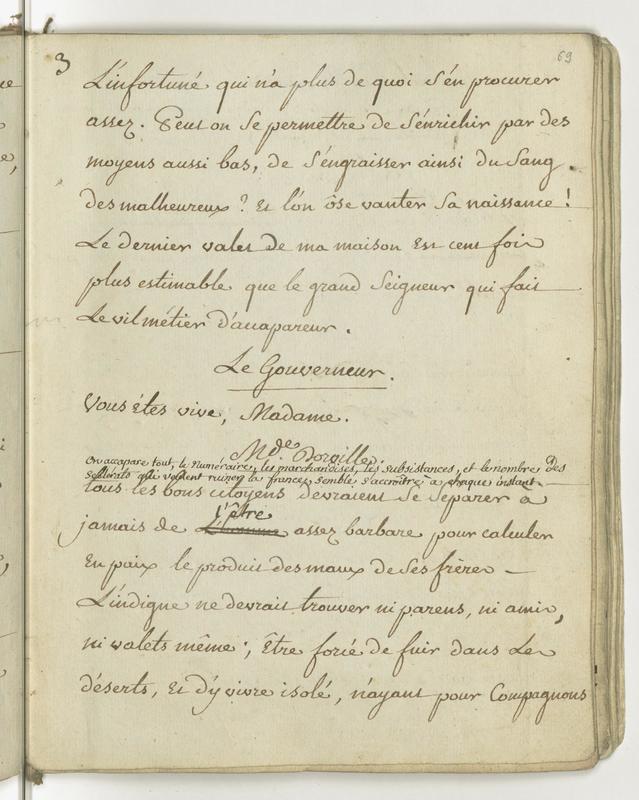 3
69
L'infortuné qui n'a plus de quoi s'en procurer
assez. Peut on se permettre de s'énrichir par des
moyens aussi bas, de s'éngraisser ainsi du sang
des malheureux ? Et l'ón ôse vanter sa naissance !
Le dernier valet de ma maison Est cent fois
plus estimable que le grand Seigneur qui fait
Le vil métier d'accapareur.
Le Gouverneur.
Vous êtes vive, Madame.
Mde. Dorville.
On accapare tout, le numéraire, les marchandises, les subsistances, et le nombre des
scélérats qui veulent ruiner la france, semble s'accroître à chaque instant.
tous les bons citoyens devraient se séparer à
l'être
jamais de L'homme assez barbare pour calculer
En paix le produit des maux de ses frères —
L'indigne ne devrait trouver ni parens, ni amis,
ni valets même ; Être forcé de fuir dans Les
déserts, Et d'y vivre isolé, n'ayant pour Compagnons